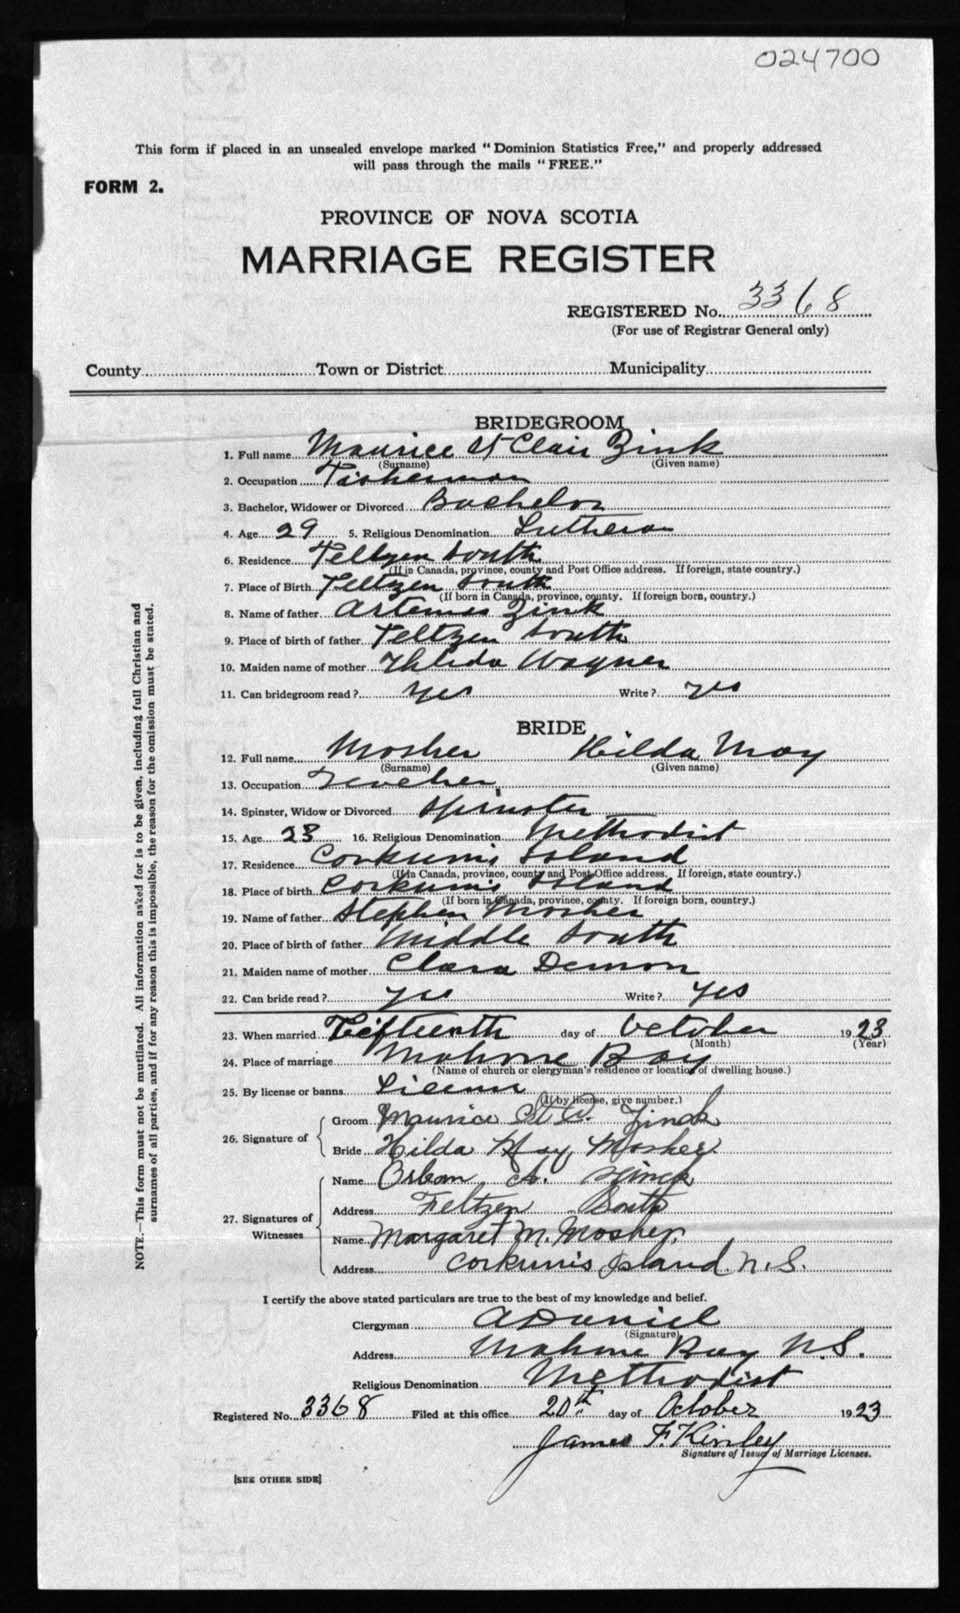 024700
This form if placed in an unsealed envelope marked "Dominion Statistics Free," and properly addressed
will pass through the mails "FREE."
FORM 2.
PROVINCE OF NOVA SCOTIA
MARRIAGE REGISTER
REGISTERED No. 3368
(For use of Registrar General only)
County Town or District Municipality
BRIDEGROOM
1. Full name Maurice St Clair Zink
(Surname) (Given name)
2. Occupation Fisherman
3. Bachelor, Widower or Divorced Bachelor
4. Age 29 5. Religious Denomination Lutheran
6. Residence Feltzen South
(If in Canada, province, county and Post Office address. If foreign, state country.)
7. Place of Birth Feltzen South
(If born in Canada, province, county. If foreign born, country.)
8. Name of father Artemas Zink
9. Place of birth of father Feltzen South
10. Maiden name of mother Wagner
11. Can bridegroom read? yes Write? yes
BRIDE
12. Full name Mosher Hilda May
(Surname) (Given name)
13. Occupation Teacher
14. Spinster, Widow or Divorced Spinster
15. Age 23 16. Religious Denomination Methodist
17. Residence Corkum's Island
(If in Canada, province, county and Post Office address. If foreign, state country.)
18. Place of birth Corkum's Island
(If born in Canada, province, county. If foreign born, country.)
19. Name of father Stephen Mosher
20. Place of birth of father Middle South
21. Maiden name of mother Clara Demon
22. Can bride read? yes Write? yes
23. When married Fifteenth day of October 1923
(Month) (Year)
24. Place of marriage Mahone Bay
(Name of church or clergyman's residence or location of dwelling house.)
25. By license or banns License
(If by license, give number.)
26. Signature of
Groom Maurice St C. Zinck
Bride Hilda May Mosher
27. Signatures of Witnesses
Name Orban A. Zinck
Address Feltzen South
Name Margaret M. Mosher.
Address Corkum's Island. N.S.
I certify the above stated particulars are true to the best of my knowledge and belief.
Clergyman A Daniel
(Signature)
Address Mahone Bay N.S.
Religious Denomination Methodist
Registered No. 3368 Filed at this office 20th day of October 1923
James F. Kinley
Signature of Issuer of Marriage Licenses.
[SEE OTHER SIDE]
NOTE.—This form must not be mutilated. All information asked for is to be given, including full Christian and
surnames of all parties, and if for any reason this is impossible, the reason for the omission must be stated.